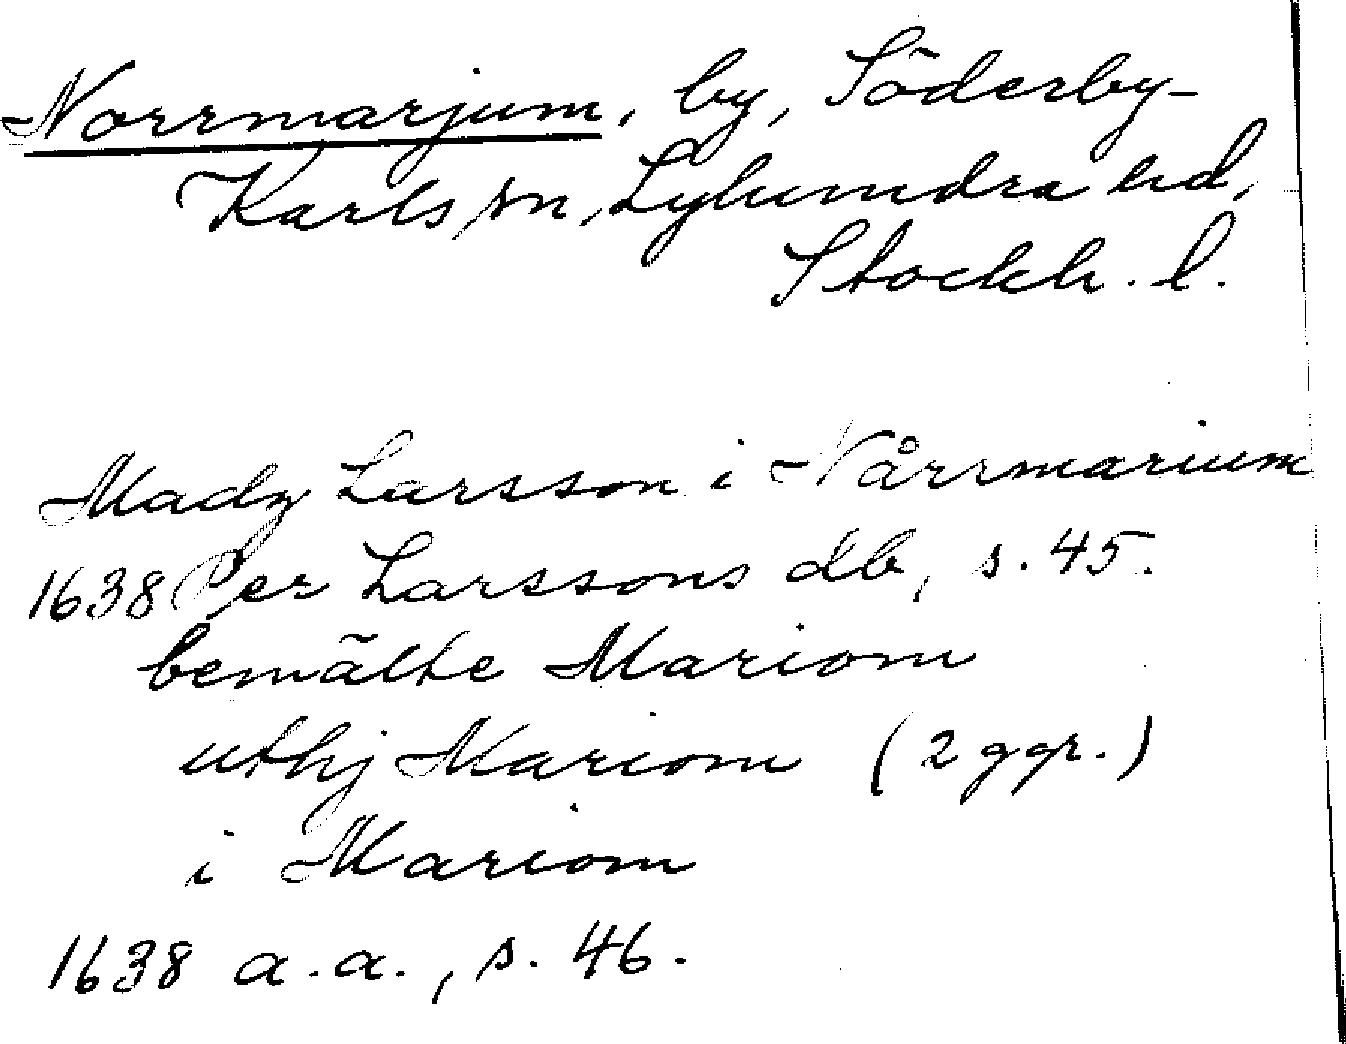 Norrmarjum, by, Söderby-
Karls sn, Lyhundra hd,
Stockh. l.
Madz Larsson i Nårrmarium
1638 Per Larssons db, s. 45.
bemälte Mariom
uthj Mariom (2 ggr.)
i Mariom
1638 a.a., s. 46.